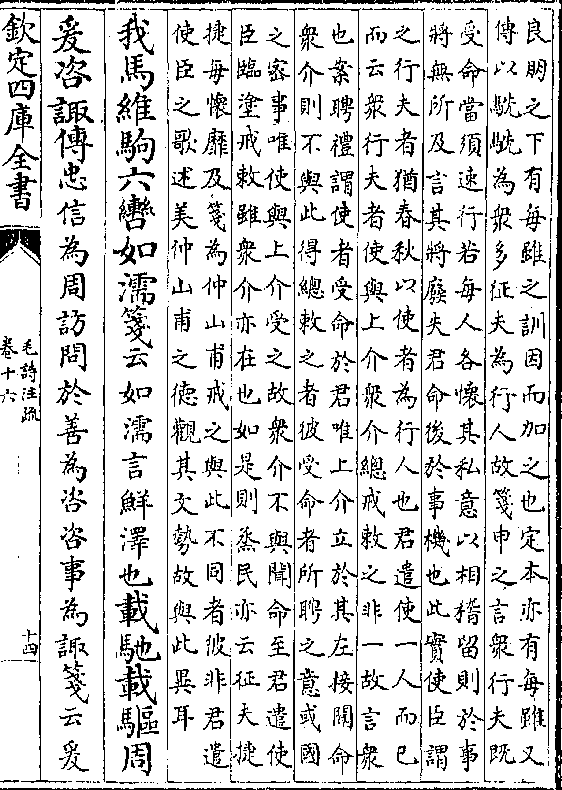 良朋之下有每雖之訓因而加之也定本亦有每雖又
傳以駪駪為衆多征夫為行人故箋申之言衆行夫既
受命當須速行若每人各懷其私意以相稽留則於事
將無所及言其將廢失君命後於事機也此實使臣謂
之行夫者猶春秋以使者為行人也君遣使一人而已
而云衆行夫者使與上介衆介總戒敕之非一故言衆
也案聘禮謂使者受命於君唯上介立於其左接聞命
衆介則不與此得總敕之者彼受命者所聘之意或國
之密事唯使與上介受之故衆介不與聞命至君遣使
臣臨塗戒敕雖衆介亦在也如是則烝民亦云征夫捷
捷每懷靡及箋為仲山甫戒之與此不同者彼非君遣
使臣之歌述美仲山甫之德觀其文勢故與此異耳
我馬維駒六轡如濡箋云如濡言鮮澤也載馳載驅周
爰咨諏傳忠信為周訪問於善為咨咨事為諏箋云爰
欽定四庫全書
毛詩注疏
卷十六
十四